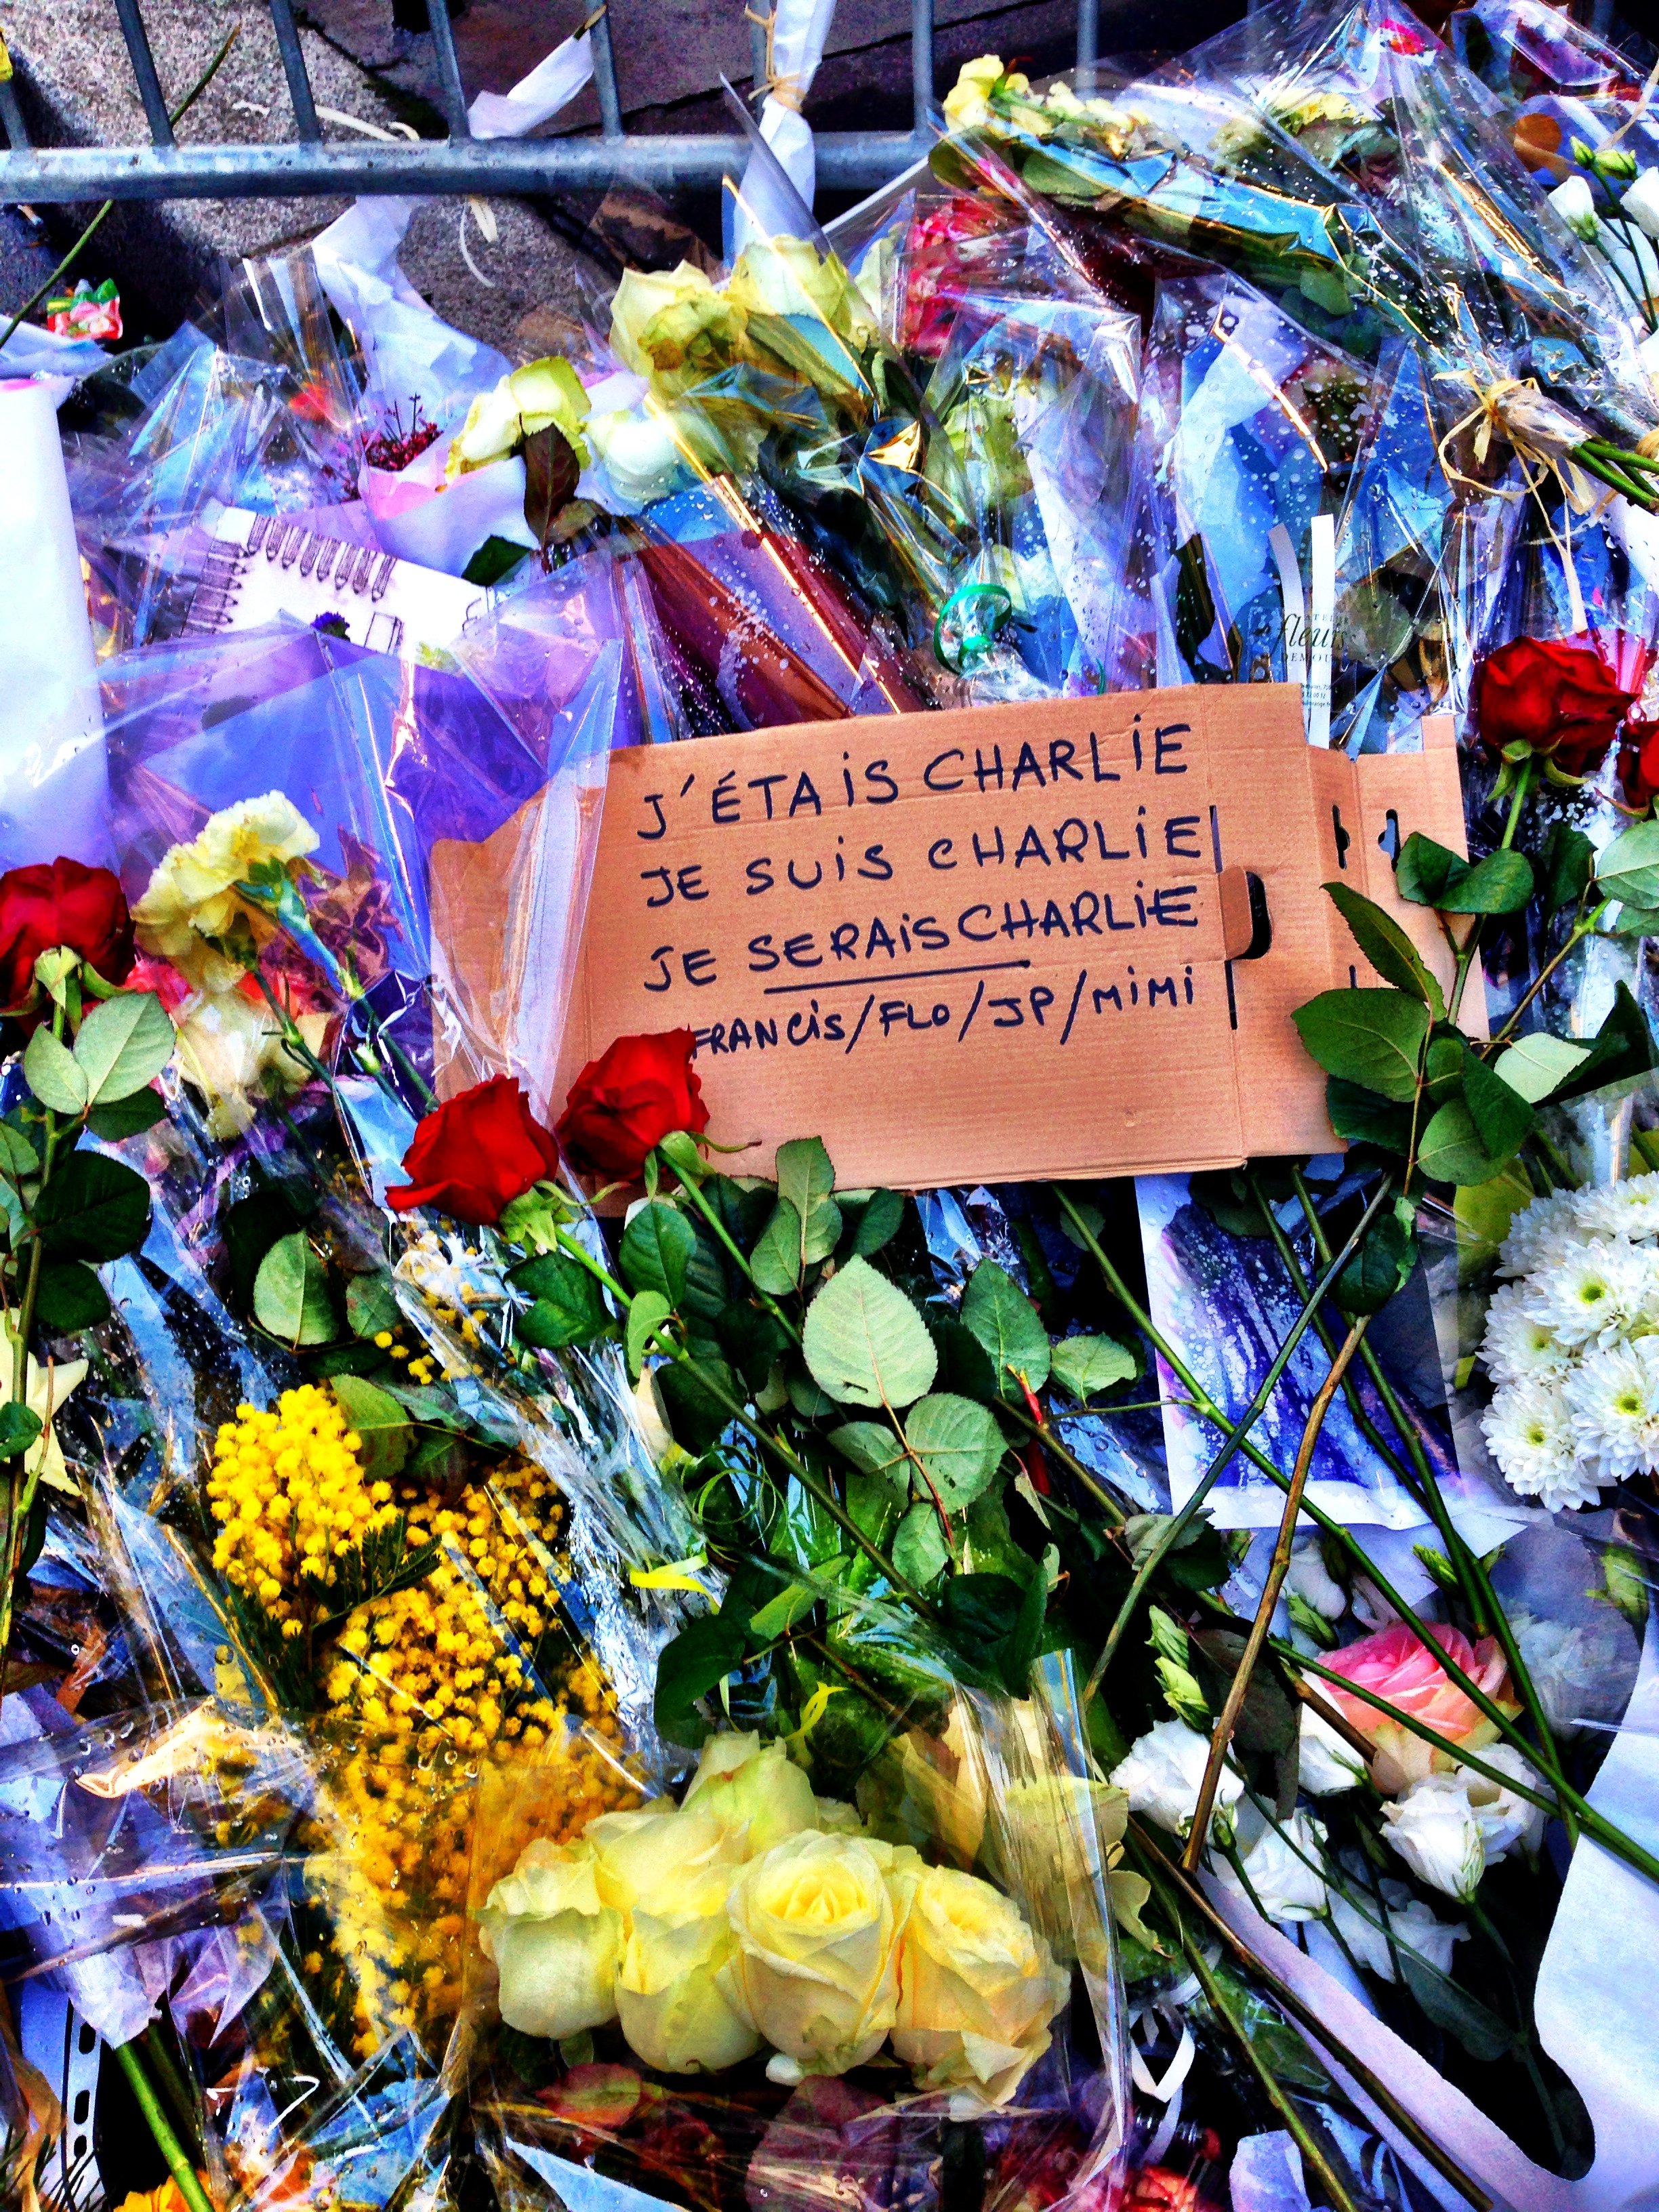 fleurs
J'ÉTAIS CHARLIE
JE SUIS CHARLIE
JE SERAIS CHARLIE
FRANCIS/FLO/JP/MIMI